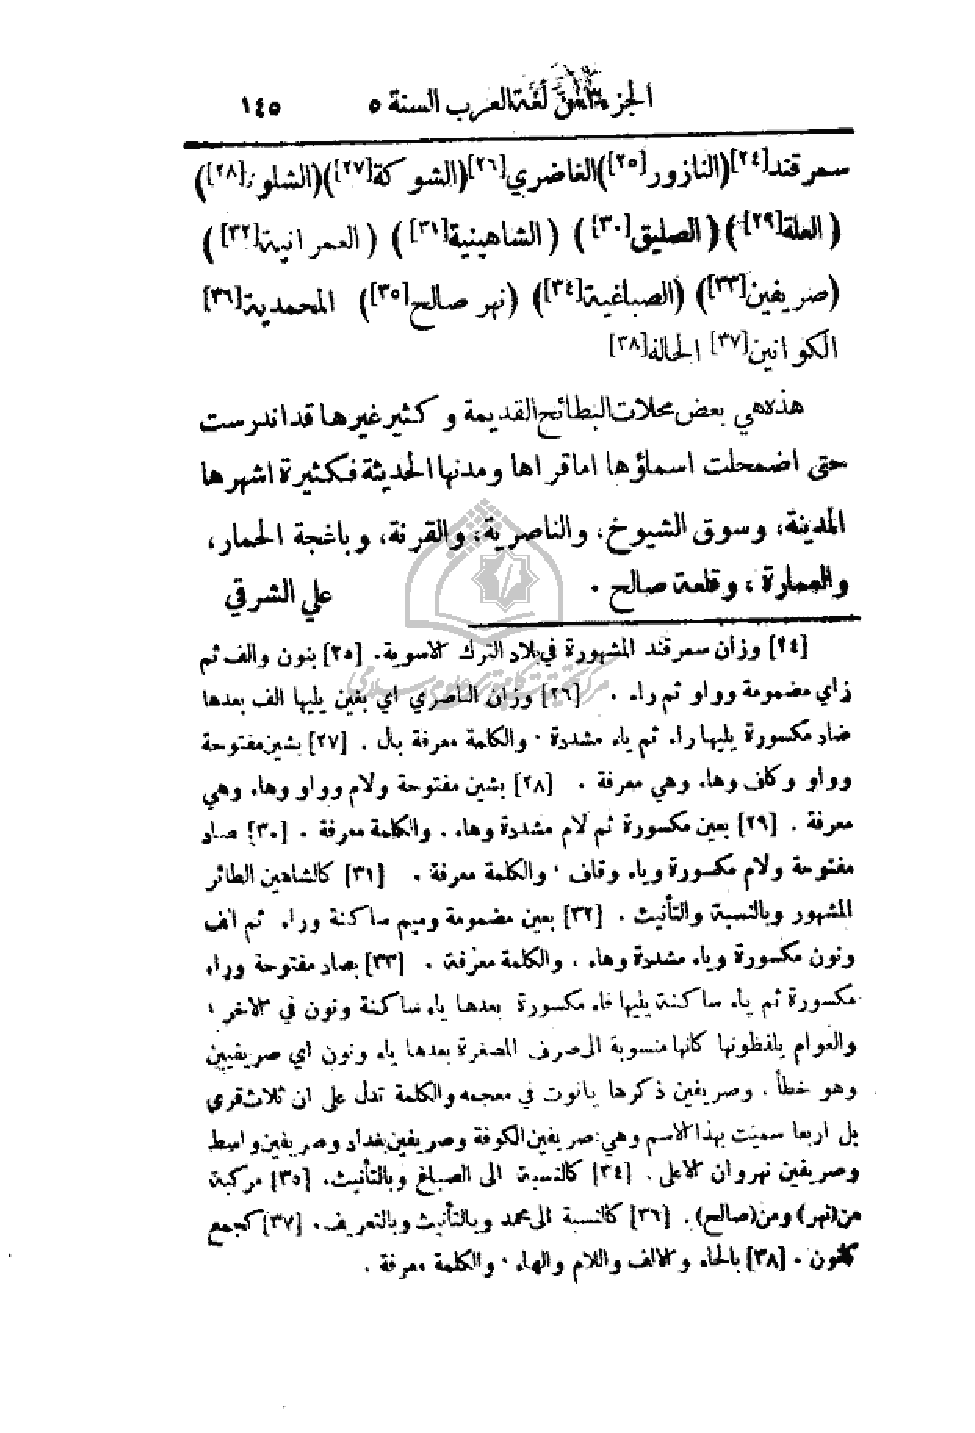 الجزء ٣ من لغة العرب السنة ٥ ١٤٥
سمرقند[٢٤] (النازور[٢٥]) الغاضري[٢٦] (الشوكة[٢٧]) (الشلوة[٢٨])
(العلة[٢٩]) (الصليق[٣٠]) (الشاهينية[٣١]) (العمرانية[٣٢])
(صريفين[٣٣]) (الصباغية[٣٤]) (نهر صالح[٣٥]) المحمدية[٣٦]
الكوانين[٣٧] الحالة[٣٨]
هذه هي بعض محلات البطائح القديمة وكثير غيرها قد اندرست
حتى اضمحلت اسماؤها اما قراها ومدنها الحديثة فكثيرة اشهرها
المدينة، وسوق الشيوخ، والناصرية، والقرنة، وباغجة الحمار،
والعمارة، وقلعة صالح. علي الشرقي
[٢٤] وزان سمرقند المشهورة في بلاد الترك الاسوية. [٢٥] بنون والف ثم
زاي مضمومة وواو ثم راء. [٢٦] وزان الناصري اي بغين يليها الف بعدها
ضاد مكسورة يليها راء ثم ياء مشددة. والكلمة معرفة بال. [٢٧] بشين مفتوحة
وواو وكاف وهاء وهي معرفة. [٢٨] بشين مفتوحة ولام وواو وهاء وهي
معرفة. [٢٩] بعين مكسورة ثم لام مشددة وهاء. والكلمة معرفة. [٣٠] صاد
مفتوحة ولام مكسورة وياء وقاف. والكلمة معرفة. [٣١] كالشاهين الطائر
المشهور وبالنسبة والتأنيث. [٣٢] بعين مضمومة وميم ساكنة وراء ثم الف
ونون مكسورة وياء مشددة وهاء. والكلمة معرفة. [٣٣] بصاد مفتوحة وراء
مكسورة ثم ياء ساكنة يليها فاء مكسورة بعدها ياء ساكنة ونون في الاخر.
والعوام يلفظونها كانها منسوبة الى صرف المصغرة بعدها ياء ونون اي صريفيين
وهو خطأ. وصريفين ذكرها ياقوت في معجمه والكلمة تدل على ان ثلاث قرى
بل اربعا سميت بهذا الاسم وهي: صريفين الكوفة وصريفين بغداد وصريفين واسط
وصريفين نهروان الاعلى. [٣٤] كالنسبة الى الصباغ وبالتأنيث. [٣٥] مركبة
من (نهر) ومن (صالح). [٣٦] كالنسبة الى محمد وبالتأنيث وبالتعريف. [٣٧] كجمع
كانون. [٣٨] بالحاء والالف واللام والهاء. والكلمة معرفة.